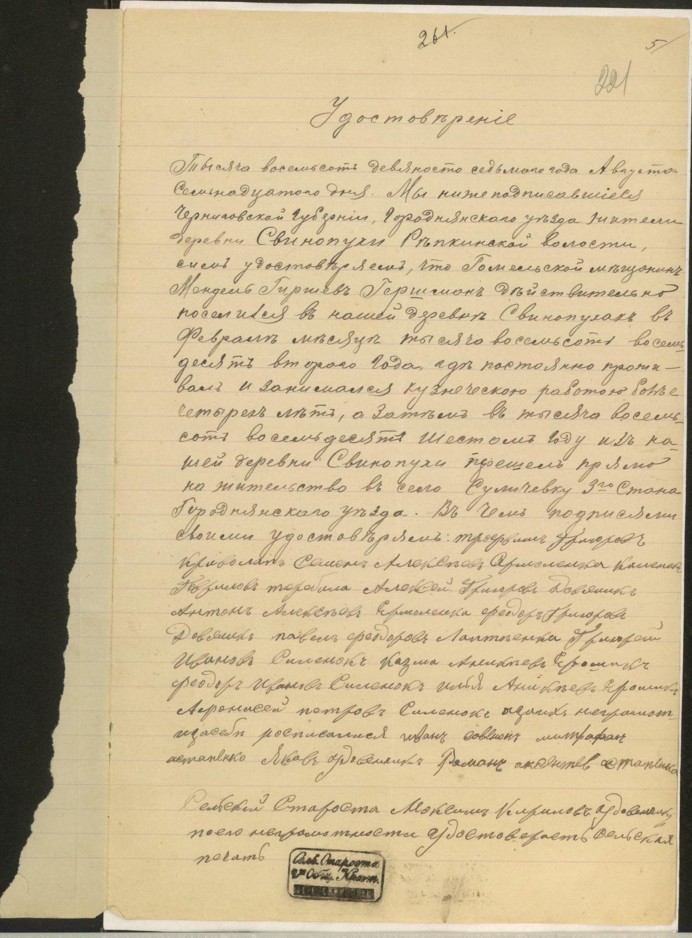 261.
5
221
Удостовѣреніе
Тысяча восемьсотъ девяносто седьмаго года Августа
Семнадцатого дня. Мы нижеподписавшіеся
Черниговской Губерніи, Городнянского уѣзда жители
деревни Свинопухи Рѣпкинской волости,
симъ удостовѣряемъ, что Гомельской мѣщанинъ
Мендель Гиршевъ Гершманъ дѣйствительно
поселился въ нашей деревнѣ Свинопухахъ въ
Февралѣ мѣсяцѣ тысяча восемьсотъ восемь
десятъ второго года, гдѣ постоянно прожи-
валъ и занимался кузнеческою работою болѣе
четырехъ лѣтъ, а затѣмъ въ тысяча восемь
сотъ восемьдесятъ шестомъ году изъ на-
шей деревни Свинопухи перешелъ прямо
на жительство въ село Суличевку 3го Стана
Городнянского уѣзда. Въ чемъ подписями
своими удостовѣряемъ: Григоровъ
Семенъ Алексѣевъ Ермоленка
Алексѣй Григоровъ
Антонъ Алексѣевъ Ермоленка Федоръ Григоровъ
павелъ федоровъ Григорей
Ивановъ Силенокъ Казма Аникѣевъ
федоръ Ивановъ Силенокъ илья Аникѣевъ
Афонасей петровъ Силенокъ неграмот
росписался иванъ
Яковъ Романъ
Сельскій Староста Максимъ Кириловъ
поего неграмотности удостоверяетъ сельская
печать
Сел. Староста